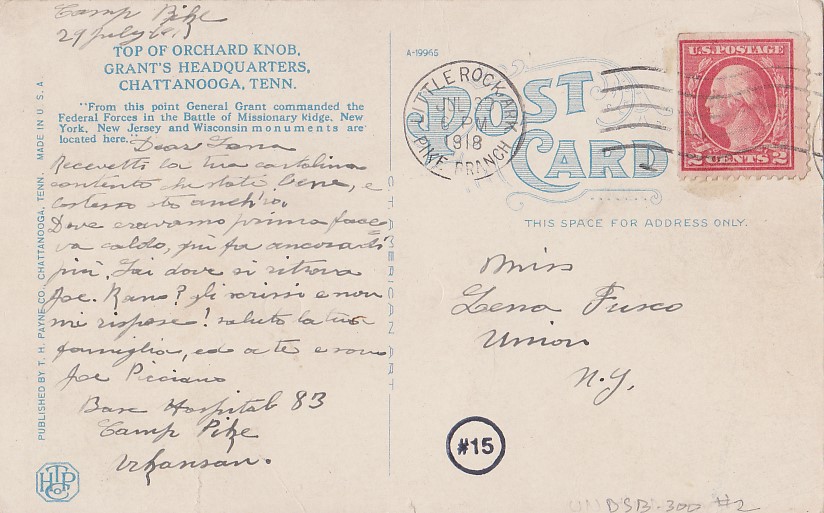 Camp Pike
29 July
TOP OF ORCHARD KNOB,
GRANT'S HEADQUARTERS,
CHATTANOOGA, TENN.
"From this point General Grant commanded the
Federal Forces in the Battle of Missionary Ridge. New
York, New Jersey and Wisconsin monuments are
located here."
Dear
Recevetti la tua cartolina
contento che stati bene, e
sto anch'io.
Dove eravamo prima face
va caldo, qui fa ancora di
più. Sai dove si ritrova
Joe. ? gli scrissi e non
mi rispose! saluto la tua
famiglia, ed a te e sono
Joe Picciano
Base Hospital 83
Camp Pike
Arkansas.
PUBLISHED BY T. H. PAYNE CO., CHATTANOOGA, TENN. MADE IN U.S.A.
HTP Co
C.T. AMERICAN ART
A-19965
POST
CARD
THIS SPACE FOR ADDRESS ONLY.
LITTLE ROCK, ARK.
JUL 29
6 PM
1918
PIKE BRANCH
U.S. POSTAGE
2 CENTS 2
Miss
Lena Fusco
Union
N.Y.
#15
DSB-300 #2